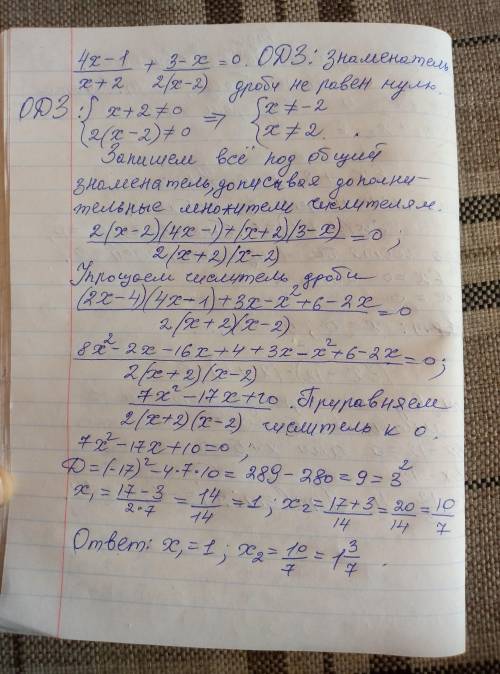 (4x-1)/(x+2) + (3-x)/(2(x-2)) = 0. ОДЗ: знаменатель
дроби не равен нулю.
ОДЗ: { x+2≠0 ⇒ { x≠-2
2(x-2)≠0 x≠2.
Запишем всё под общий
знаменатель, дописывая дополни-
тельные множители числителям.
(2(x-2)(4x-1)+(x+2)(3-x))/(2(x+2)(x-2)) = 0;
Упрощаем числитель дроби
((2x-4)(4x-1)+3x-x²+6-2x)/(2(x+2)(x-2)) = 0
(8x²-2x-16x+4+3x-x²+6-2x)/(2(x+2)(x-2)) = 0;
(7x²-17x+10)/(2(x+2)(x-2)). Приравняем
числитель к 0.
7x²-17x+10=0;
D=(-17)²-4·7·10=289-280=9=3²
x₁=(17-3)/(2·7)=14/14=1; x₂=(17+3)/14=20/14=10/7
Ответ: x₁=1; x₂=10/7=1 3/7.